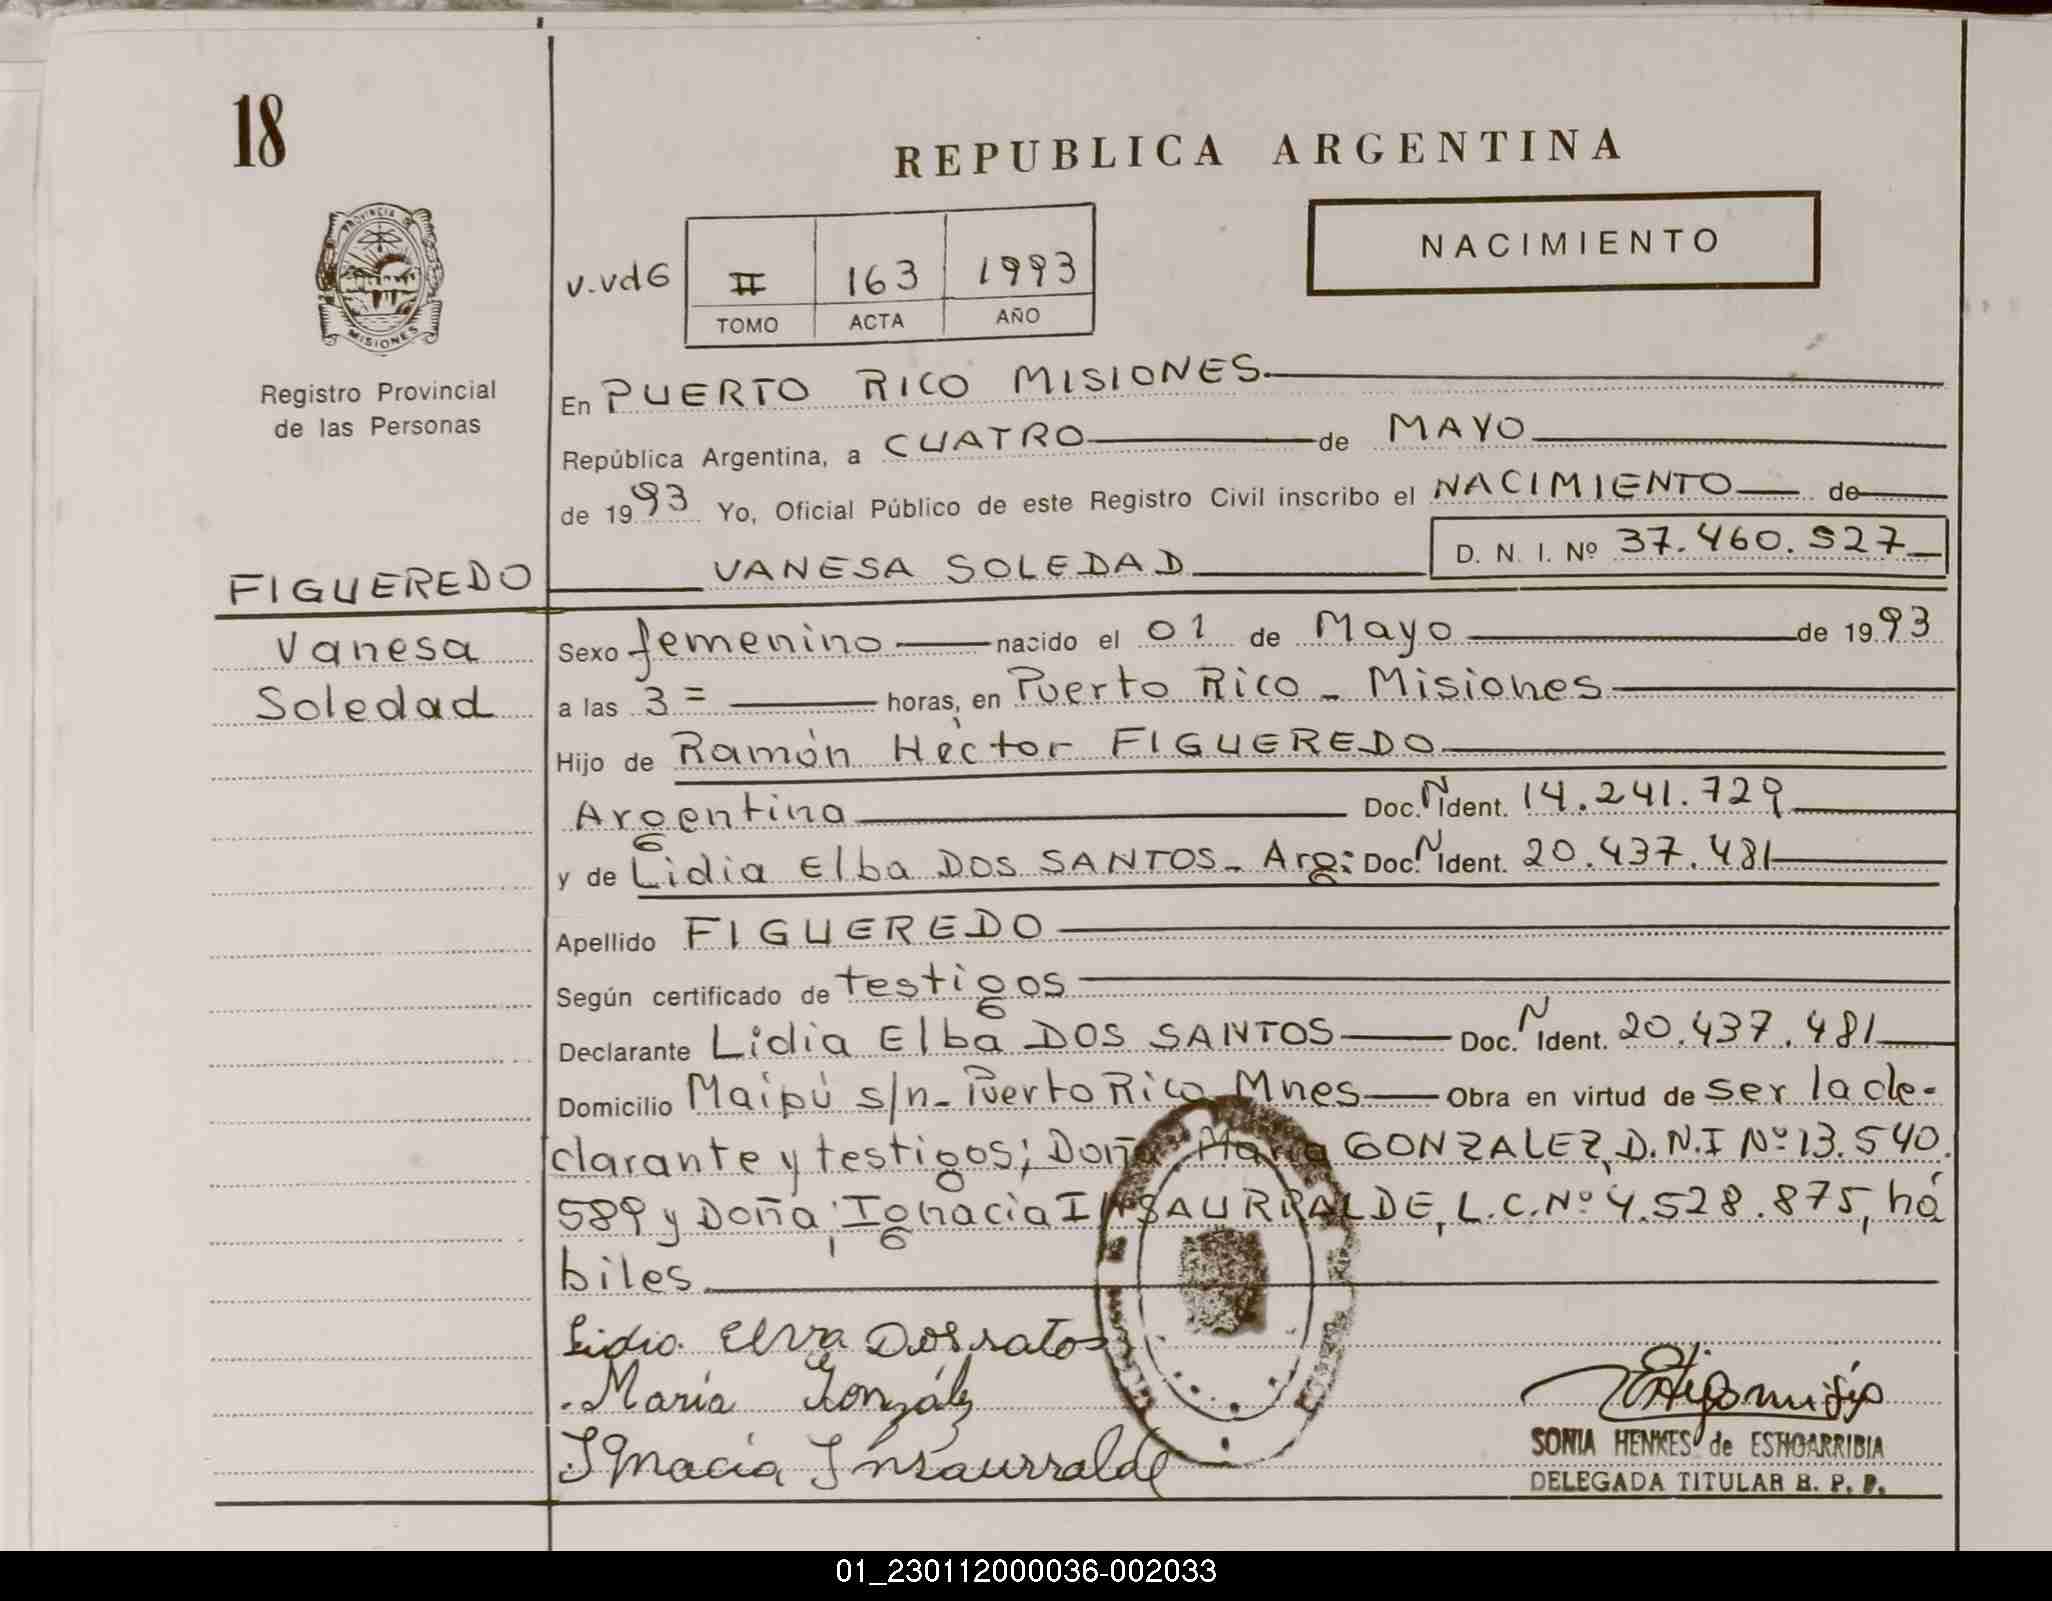 18
REPUBLICA ARGENTINA
NACIMIENTO
PROVINCIA DE
MISIONES
v.vd6
II 163 1993
TOMO ACTA AÑO
Registro Provincial
de las Personas
En PUERTO RICO MISIONES
República Argentina, a CUATRO de MAYO
de 1993 Yo, Oficial Público de este Registro Civil inscribo el NACIMIENTO de
VANESA SOLEDAD D. N. I. Nº 37.460.527
FIGUEREDO
Vanesa
Soledad
Sexo femenino nacido el 01 de Mayo de 1993
a las 3= horas, en Puerto Rico - Misiones
Hijo de Ramón Héctor FIGUEREDO
Argentino Doc. N Ident. 14.241.729
y de Lidia Elba DOS SANTOS - Arg: Doc. N Ident. 20.437.481
Apellido FIGUEREDO
Según certificado de testigos
Declarante Lidia Elba DOS SANTOS Doc. N Ident. 20.437.481
Domicilio Maipú s/n - Puerto Rico Mnes Obra en virtud de ser la de-
clarante y testigos; Doña María GONZALEZ, D.N.I Nº 13.540.
589 y Doña Ignacia INSAURRALDE, L.C.Nº 4.528.875, há
biles
Lidia Elva Dossatos
María González
Ignacia Insaurralde
SONIA HENKES de ESTIGARRIBIA
DELEGADA TITULAR R. P. P.
01_230112000036-002033